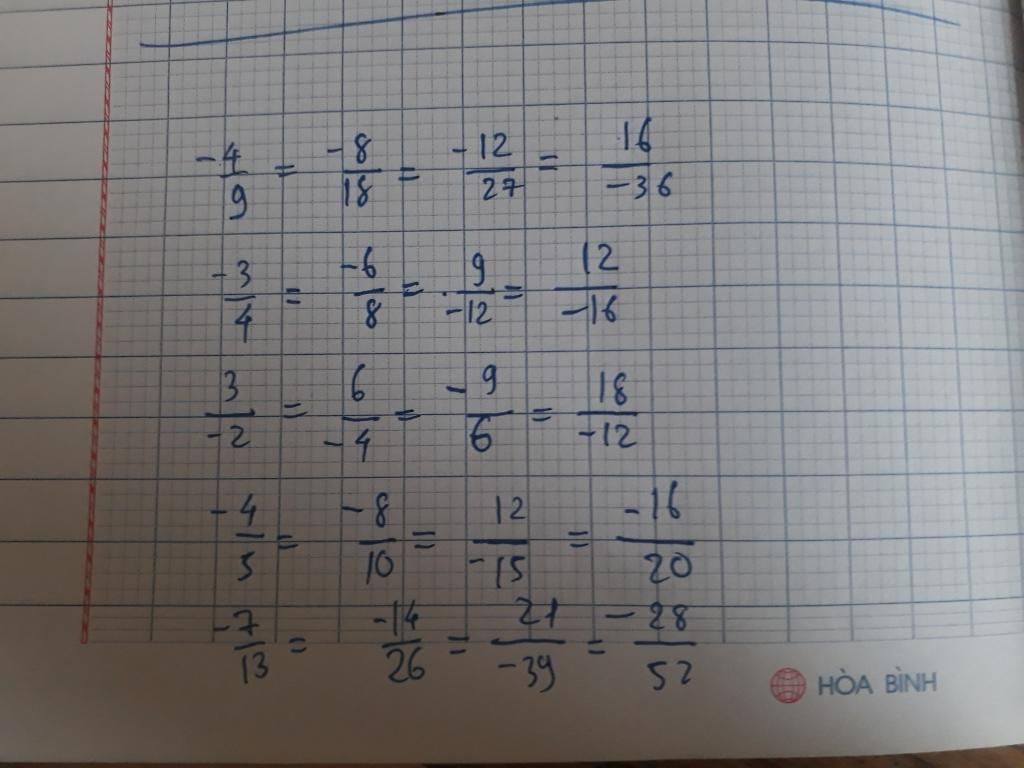 -4/9 = -8/18 = -12/27 = 16/-36
-3/4 = -6/8 = 9/-12 = 12/-16
3/-2 = 6/-4 = -9/6 = 18/-12
-4/5 = -8/10 = 12/-15 = -16/20
-7/13 = -14/26 = 21/-39 = -28/52
HÒA BÌNH